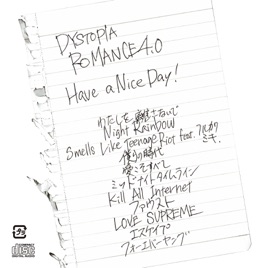 DYSTOPIA
ROMANCE 4.0
Have a Nice Day!
わたしを離さないで
Night Rainbow
Smells Like Teenage Riot feat. フルカワ
ミキ
僕らの時代
愛こそすべて
ミッドナイトタイムライン
Kill All Internet
ファウスト
LOVE SUPREME
エスケイプ
フォーエバーヤング